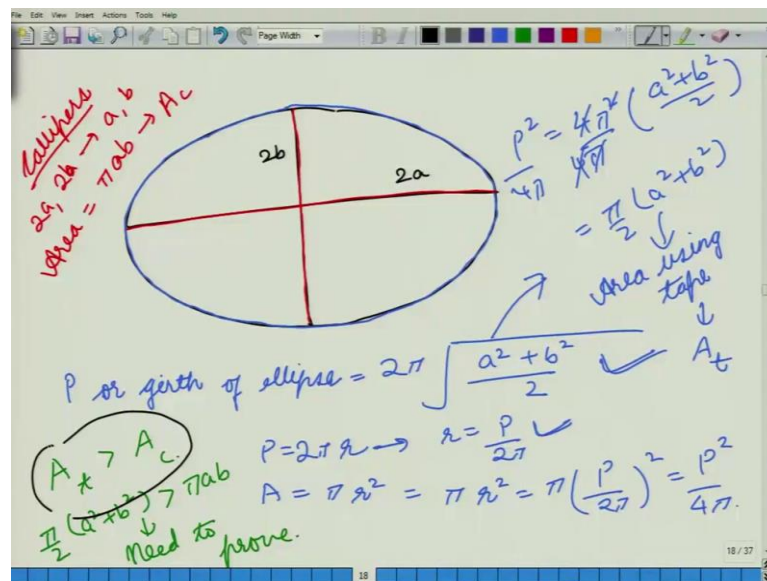 File Edit View Insert Actions Tools Help
Page Width
B I
Callipers
2a, 2b → a, b
Area = πab → Ac
2b
2a
P²/4π = 4π²/4π (a²+b²/2)
= π/2 (a²+b²)
Area using
tape
↓
At
P or girth of ellipse = 2π √(a²+b²/2)
P = 2πr → r = P/2π
A = πr² = πr² = π(P/2π)² = P²/4π.
At > Ac.
π/2 (a²+b²) > πab
↓
Need to prove.
18 / 37
18